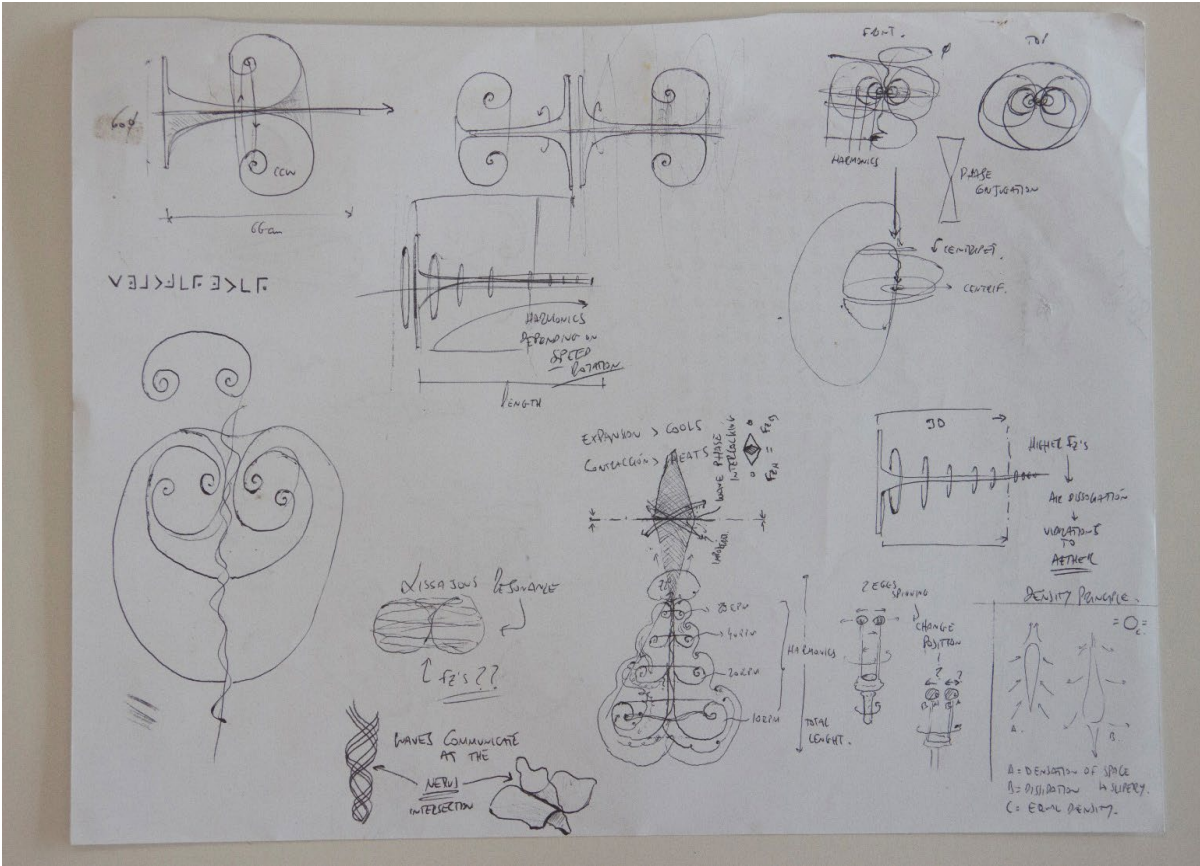 60 ø
CCW
66cm
FRONT.
ø
TOP
HARMONICS
PHASE
CONJUGATION
CENTRIPET.
CENTRIF.
HARMONICS
DEPENDING ON
SPEED
ROTATION
LENGTH
EXPANSION > COOLS
CONTRACCIÓN > HEATS
WAVE PHASE
INTERLOCKING
90
HIGHER FZ'S
AIR DISSOCIATION
VIBRATIONS
TO
AETHER
LISSAJOUS RESONANCE
FZ'S ??
80 RPM
40 RPM
20 RPM
10 RPM
HARMONICS
TOTAL
LENGHT.
2 EGGS
SPINNING
CHANGE
POSITION
DENSITY PRINCIPLE.
A.
B.
= O =
C.
A = DENSATION OF SPACE
B = DISSIPATION
C = EQUAL DENSITY.
WAVES COMMUNICATE
AT THE
NEXUS
INTERSECTION